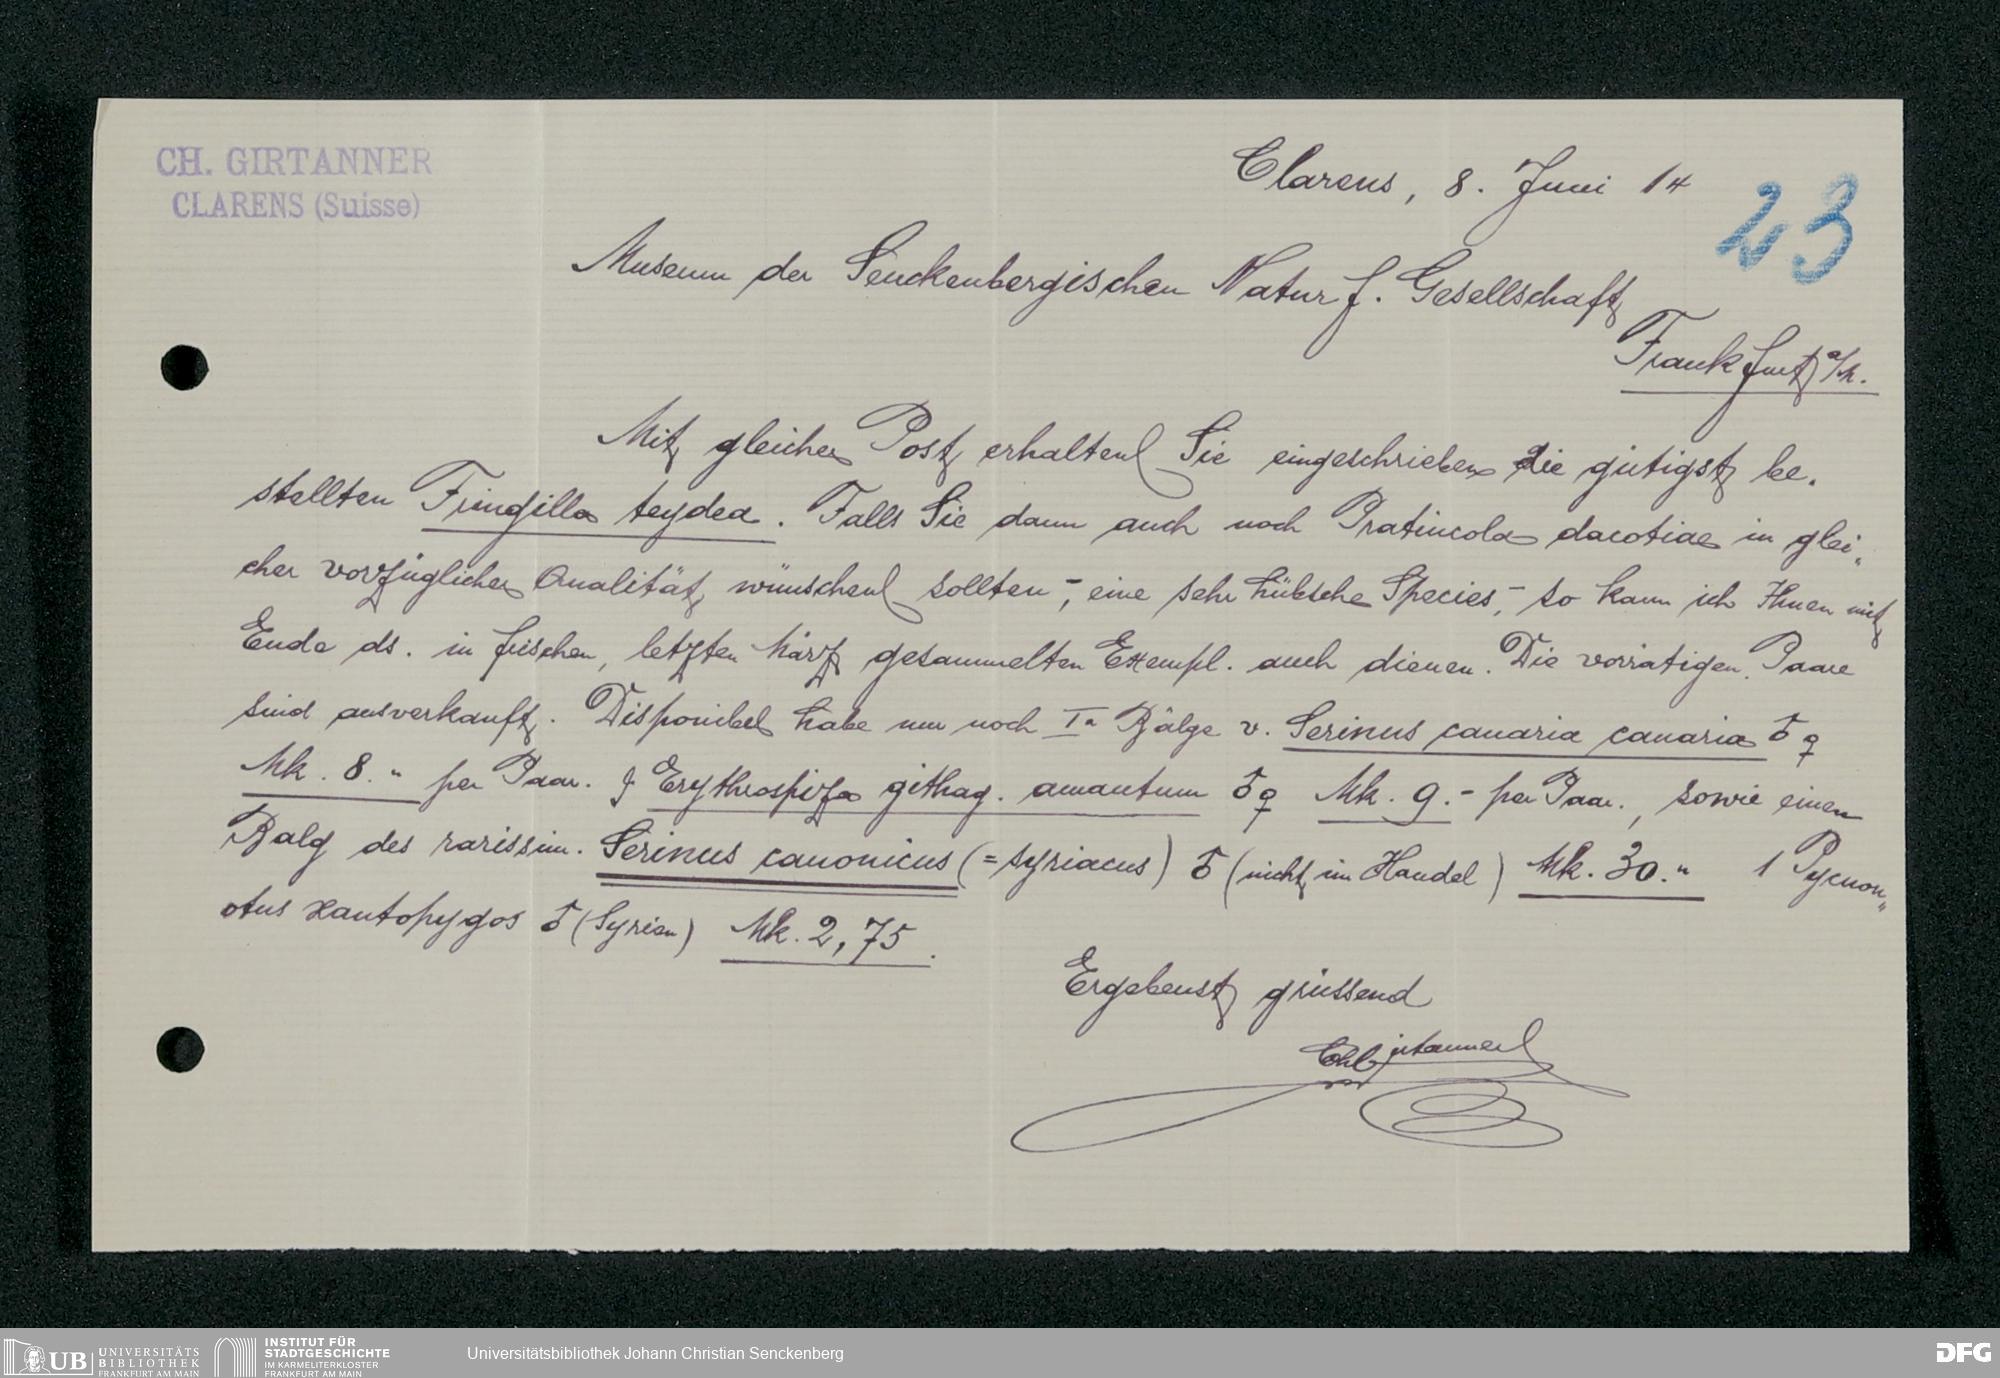 CH. GIRTANNER
CLARENS (Suisse)
Clarens, 8. Juni 14
23
Museum der Senckenbergischen Natur f. Gesellschaft
Frankfurt a/M.
Mit gleicher Post erhalten Sie eingeschrieben die gütigst be-
stellten Fringilla teydea. Falls Sie dann auch noch Pratincola dacotiae in glei-
cher vorzüglicher Qualität wünschen sollten -, eine sehr hübsche Species, - so kann ich Ihnen mit
Ende ds. in frischen, letzten März gesammelten Exempl. auch dienen. Die vorrätigen Paare
sind ausverkauft. Disponibel habe nur noch Ia Bälge v. Serinus canaria canaria ♂ ♀
Mk. 8.- per Paar. & Erythrospiza githag. amantum ♂ ♀ Mk. 9.- per Paar., sowie einen
Balg des rarissim. Serinus canonicus (= syriacus) ♂ (nicht im Handel) Mk. 30.- 1 Pycnon-
otus xantopygos ♂ (Syrien) Mk. 2,75.
Ergebenst grüssend
Ch Girtanner
UB UNIVERSITÄTS
BIBLIOTHEK
FRANKFURT AM MAIN
INSTITUT FÜR
STADTGESCHICHTE
IM KARMELITERKLOSTER
FRANKFURT AM MAIN
Universitätsbibliothek Johann Christian Senckenberg
DFG